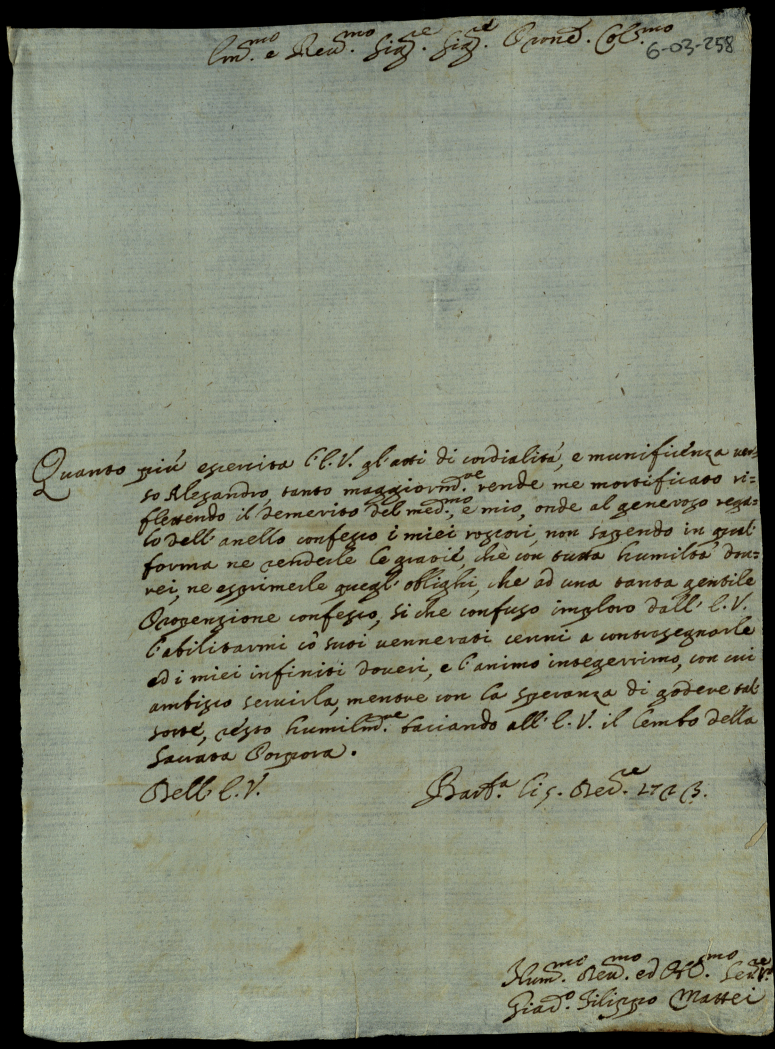 Em.mo e Reu.mo Sig.re Sig.re Prone. Col.mo
6-03-258
Quanto più esercita l'E.V. gl'atti di cordialità, e munificenza uer=
so Alesandro, tanto maggiorm.te rende me mortificato ri=
flettendo il demerito del med.mo, e mio, onde al generoso rega=
lo dell'anello confesso i miei rossori, non sapendo in qual
forma ne renderle le gratie, che con tutta humiltà dou=
rei, ne esprimerle quegl'oblighi, che ad una tanta gentile
Propenzione confesso, si che confuso imploro dall'E.V.
l'abilitarmi cò suoi uennerati cenni a contrasegnarle
ed i miei infiniti doueri, e l'animo integerrimo, con cui
ambisco seruirla, mentre con la speranza di godere tal
sorte, resto humilm.te baciando all'E.V. il lembo della
Sacrata Porpora.
Dell'E.V.
Li 5. Dec.re
Hum.mo Deu.mo ed Obl.mo Seru.re
Filippo Mattei